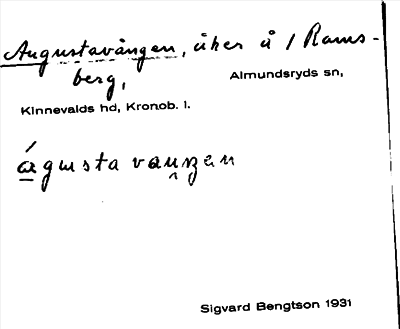 Augustavången, åker å 1 Rams-
berg, Almundsryds sn,
Kinnevalds hd, Kronob. l.
águsta
Sigvard Bengtson 1931